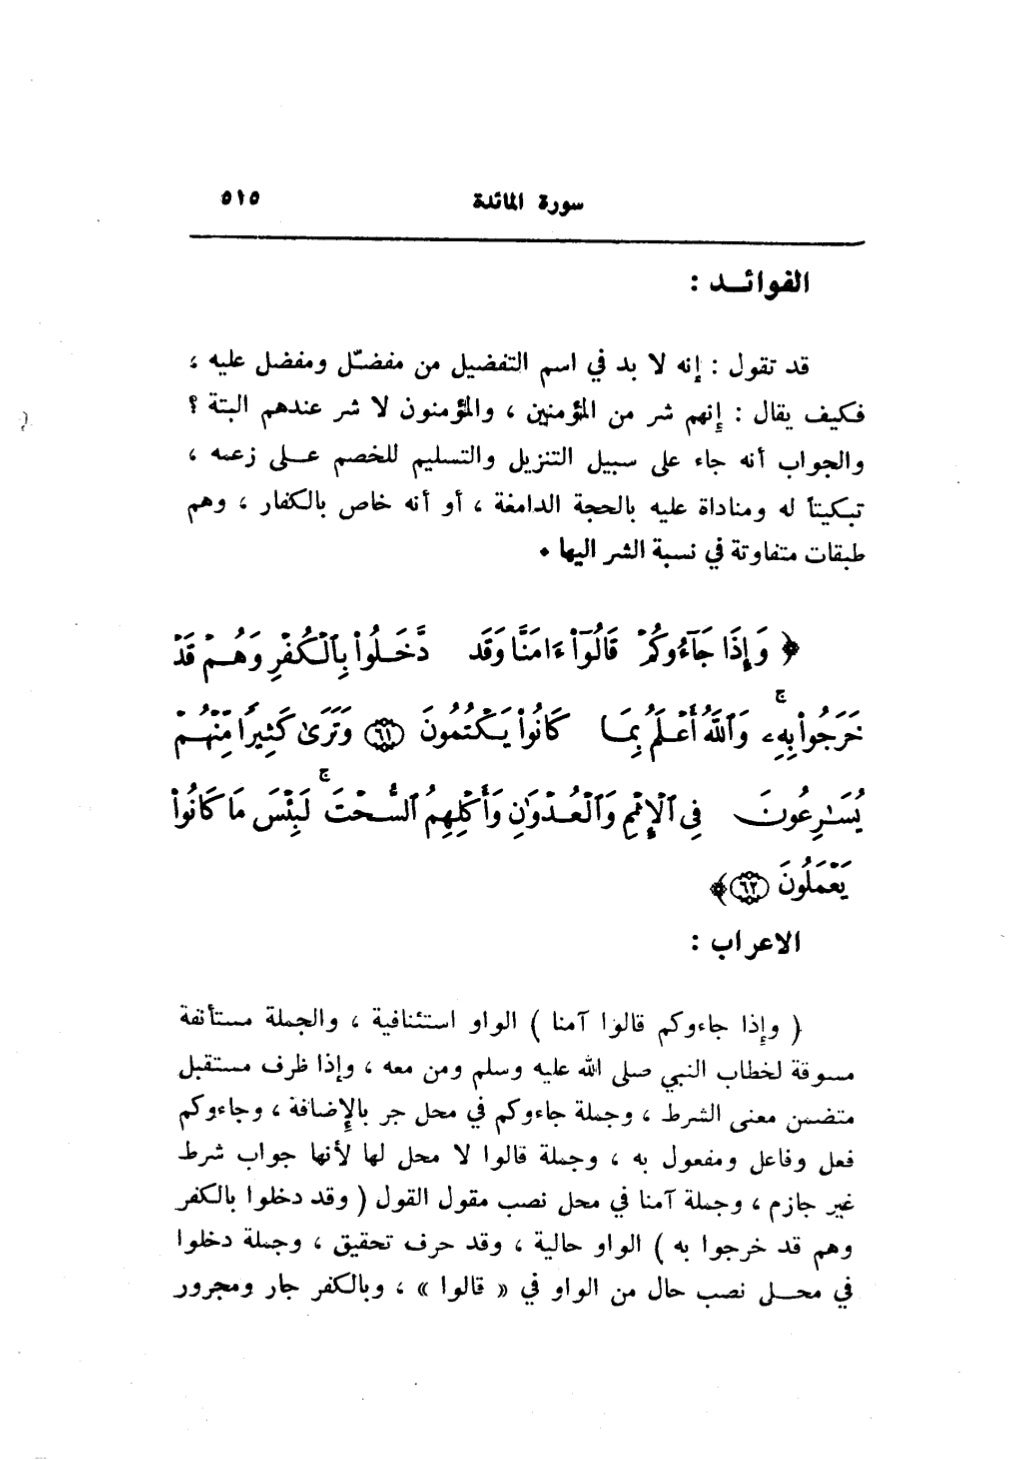 سورة المائدة ٥١٥
الفوائـد :
قد تقول : إنه لا بد في اسم التفضيل من مفضّل ومفضل عليه ،
فكيف يقال : إنهم شر من المؤمنين ، والمؤمنون لا شر عندهم البتة ؟
والجواب أنه جاء على سبيل التنزيل والتسليم للخصم عـلى زعمه ،
تبكيتاً له ومناداة عليه بالحجة الدامغة ، أو أنه خاص بالكفار ، وهم
طبقات متفاوتة في نسبة الشر اليها •
﴿ وَإِذَا جَآءُوكُمْ قَالُوٓا۟ ءَامَنَّا وَقَد دَّخَلُوا۟ بِٱلْكُفْرِ وَهُمْ قَدْ
خَرَجُوا۟ بِهِۦۚ وَٱللَّهُ أَعْلَمُ بِمَا كَانُوا۟ يَكْتُمُونَ ٦١ وَتَرَىٰ كَثِيرًا مِّنْهُمْ
يُسَـٰرِعُونَ فِى ٱلْإِثْمِ وَٱلْعُدْوَٰنِ وَأَكْلِهِمُ ٱلسُّحْتَۚ لَبِئْسَ مَا كَانُوا۟
يَعْمَلُونَ ٦٢ ﴾
الاعراب :
( وإذا جاءوكم قالوا آمنا ) الواو استئنافية ، والجملة مستأنفة
مسوقة لخطاب النبي صلى الله عليه وسلم ومن معه ، وإذا ظرف مستقبل
متضمن معنى الشرط ، وجملة جاءوكم في محل جر بالإضافة ، وجاءوكم
فعل وفاعل ومفعول به ، وجملة قالوا لا محل لها لأنها جواب شرط
غير جازم ، وجملة آمنا في محل نصب مقول القول ( وقد دخلوا بالكفر
وهم قد خرجوا به ) الواو حالية ، وقد حرف تحقيق ، وجملة دخلوا
في محـل نصب حال من الواو في « قالوا » ، وبالكفر جار ومجرور